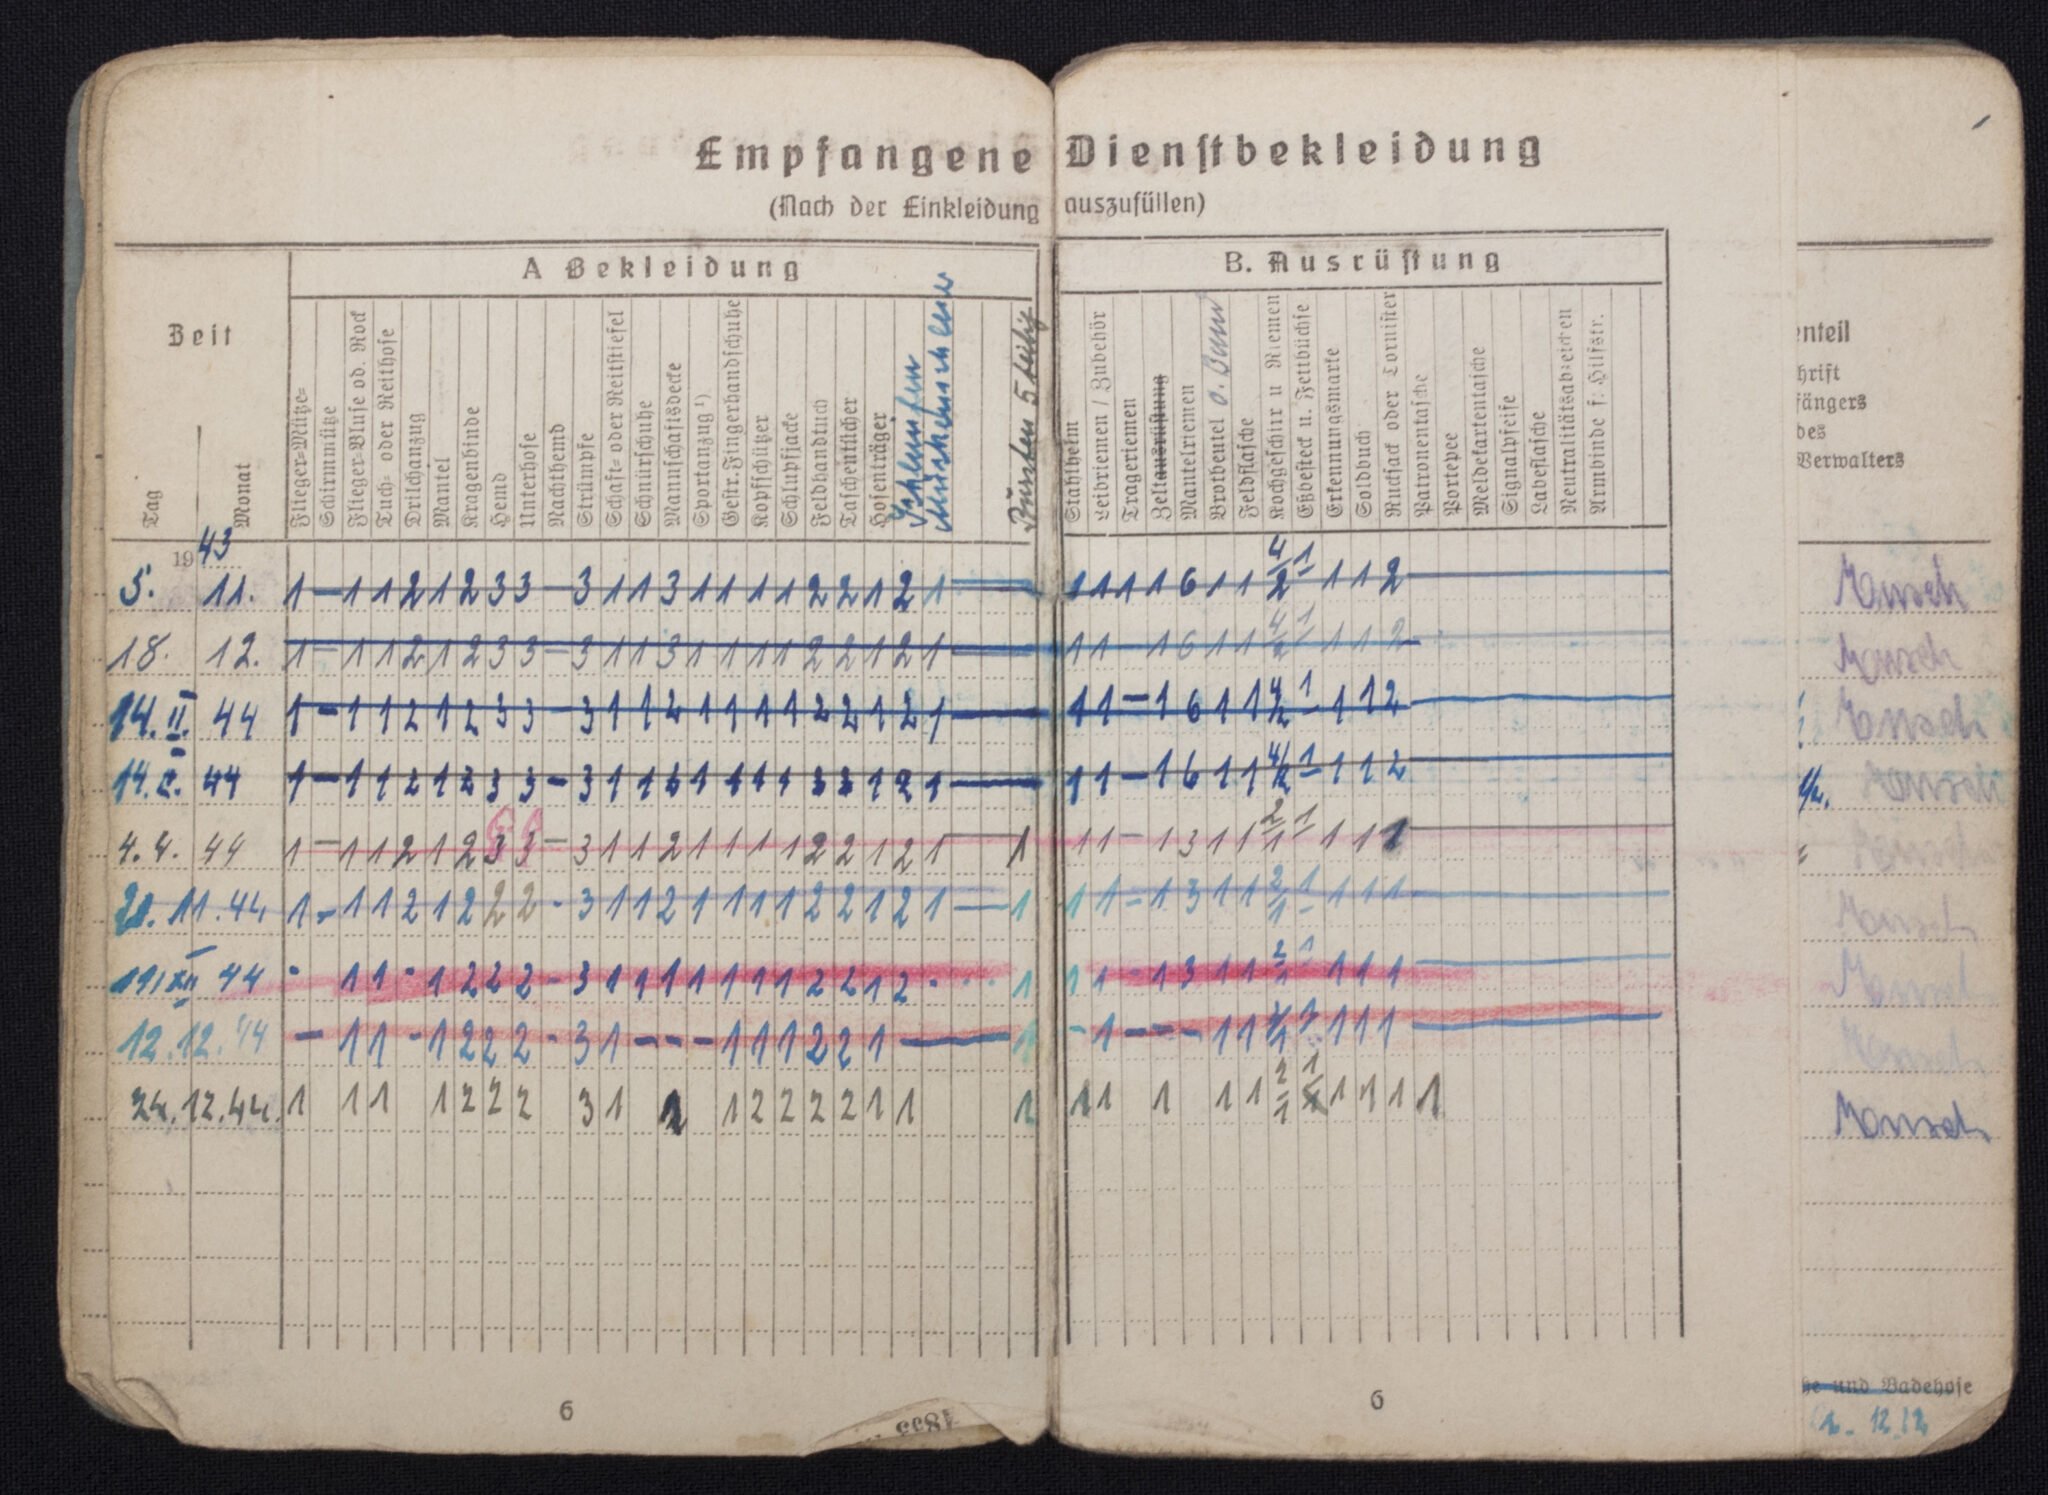 Empfangene Dienstbekleidung
(Nach der Einkleidung auszufüllen)
A Bekleidung
B. Ausrüstung
Zeit
Tag
Monat
Flieger-Mütze-
Schirmmütze
Flieger-Bluse od. Rock
Tuch- oder Reithose
Drilchanzug
Mantel
Kragenbinde
Hemd
Unterhose
Nachthemd
Strümpfe
Schaft- oder Reitstiefel
Schnürschuhe
Mannschaftsdecke
Sportanzug ¹)
Gestr. Fingerhandschuhe
Kopfschützer
Schlupfjacke
Feldhandtuch
Taschentücher
Hosenträger
Bürsten 5 teilig
Stahlhelm
Leibriemen / Zubehör
Trageriemen
Zeltausrüstung
Mantelriemen
Brotbeutel o. Band
Feldflasche
Kochgeschirr u Riemen
Eßbesteck u. Fettbüchse
Erkennungsmarke
Soldbuch
Rucksack oder Tornister
Patronentasche
Portepee
Meldekartentasche
Signalpfeife
Labeflasche
Neutralitätsabzeichen
Armbinde f. Hilfskr.
enteil
hrift
fängers
des
Verwalters
1943
5. 11. 1 – 1 1 2 1 2 3 3 – 3 1 1 3 1 1 1 1 2 2 1 2 1 1 1 1 1 6 1 1 4/2 1 1 1 2
18. 12. 1 – 1 1 2 1 2 3 3 – 3 1 1 3 1 1 1 1 2 2 1 2 1 — 1 1 – 1 6 1 1 4/2 1 1 1 2
14. II. 44 1 – 1 1 2 1 2 3 3 – 3 1 1 2 1 1 1 1 2 2 1 2 1 — 1 1 – 1 6 1 1 4/2 1 1 1 2
14. 2. 44 1 – 1 1 2 1 2 3 3 – 3 1 1 2 1 1 1 1 2 2 1 2 1 — 1 1 – 1 6 1 1 4/2 1 1 1 2
4. 4. 44 1 – 1 1 2 1 2 3 3 – 3 1 1 2 1 1 1 1 2 2 1 2 1 — 1 1 1 – 1 3 1 1 2/1 1 1 1 1
20. 11. 44 1 – 1 1 2 1 2 2 2 - 3 1 1 2 1 1 1 1 2 2 1 2 1 — 1 1 1 – 1 3 1 1 2/1 1 1 1 1
44 - 1 1 - 1 2 2 2 - 3 1 1 1 1 1 1 1 2 2 1 2 - 1 1 1 - 1 3 1 1 2/1 1 1 1 1
12. 12. 44 – 1 1 - 1 2 2 2 - 3 1 – – – 1 1 1 2 2 1 — 1 - 1 – – – 1 1 1 1 1
24. 12. 44. 1 1 1 1 2 2 2 3 1 1 2 2 2 2 1 1 1 1 1 1 1 1 2/1 1 1 1 1 1
6
6
he und Badehose
12.12